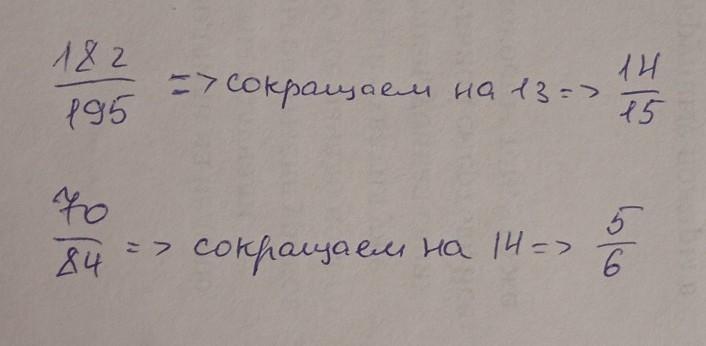 182/195 => сокращаем на 13 => 14/15
70/84 => сокращаем на 14 => 5/6